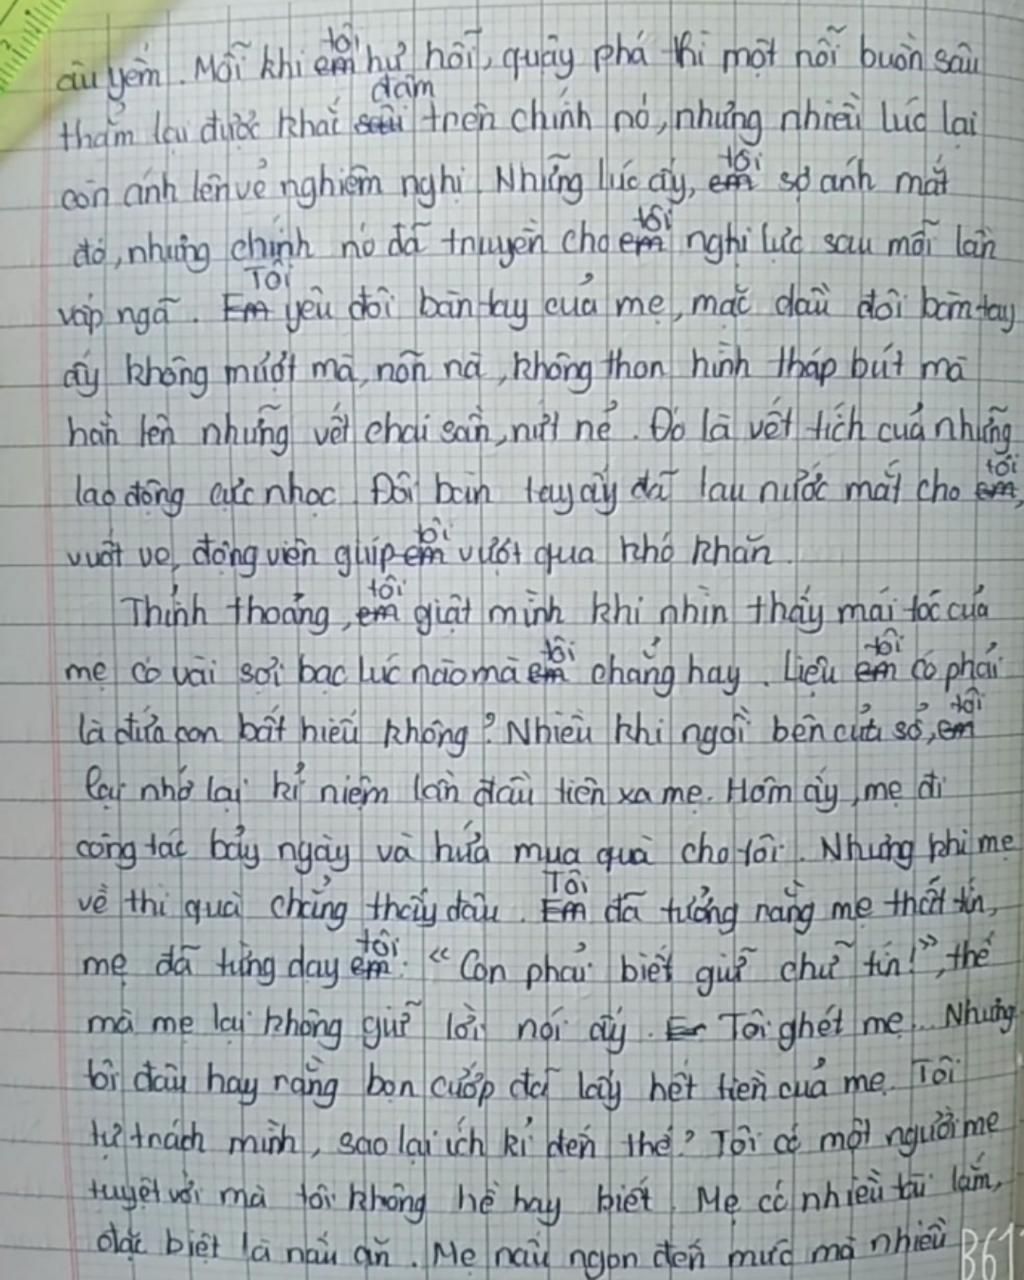 âu yếm. Mỗi khi em tôi hư hỗn, quậy phá thì một nỗi buồn sâu
thẳm lại được khắc sâu đậm trên chính nó, nhưng nhiều lúc lại
còn ánh lên vẻ nghiêm nghị. Những lúc ấy, em tôi sợ ánh mắt
đó, nhưng chính nó đã truyền cho em tôi nghị lực sau mỗi lần
vấp ngã. Em Tôi yêu đôi bàn tay của mẹ, mặc dầu đôi bàn tay
ấy không mướt mà, nõn nà, không thon hình tháp bút mà
hằn lên những vết chai sần, nứt nẻ. Đó là vết tích của những
lao động cực nhọc. Đôi bàn tay ấy đã lau nước mắt cho em tôi,
vuốt ve, động viên giúp em tôi vượt qua khó khăn.
Thỉnh thoảng, em tôi giật mình khi nhìn thấy mái tóc của
mẹ có vài sợi bạc lúc nào mà em tôi chẳng hay. Liệu em tôi có phải
là đứa con bất hiếu không? Nhiều khi ngồi bên cửa sổ, em tôi
lại nhớ lại kỉ niệm lần đầu tiên xa mẹ. Hôm ấy, mẹ đi
công tác bảy ngày và hứa mua quà cho tôi. Nhưng khi mẹ
về thì quà chẳng thấy đâu. Em Tôi đã tưởng rằng mẹ thất tín,
mẹ đã từng dạy em tôi: “Con phải biết giữ chữ tín!”, thế
mà mẹ lại không giữ lời nói ấy. E Tôi ghét mẹ... Nhưng
tôi đâu hay rằng bọn cướp đã lấy hết tiền của mẹ. Tôi
tự trách mình, sao lại ích kỉ đến thế? Tôi có một người mẹ
tuyệt vời mà tôi không hề hay biết. Mẹ có nhiều tài lắm,
đặc biệt là nấu ăn. Mẹ nấu ngon đến mức mà nhiều
B61